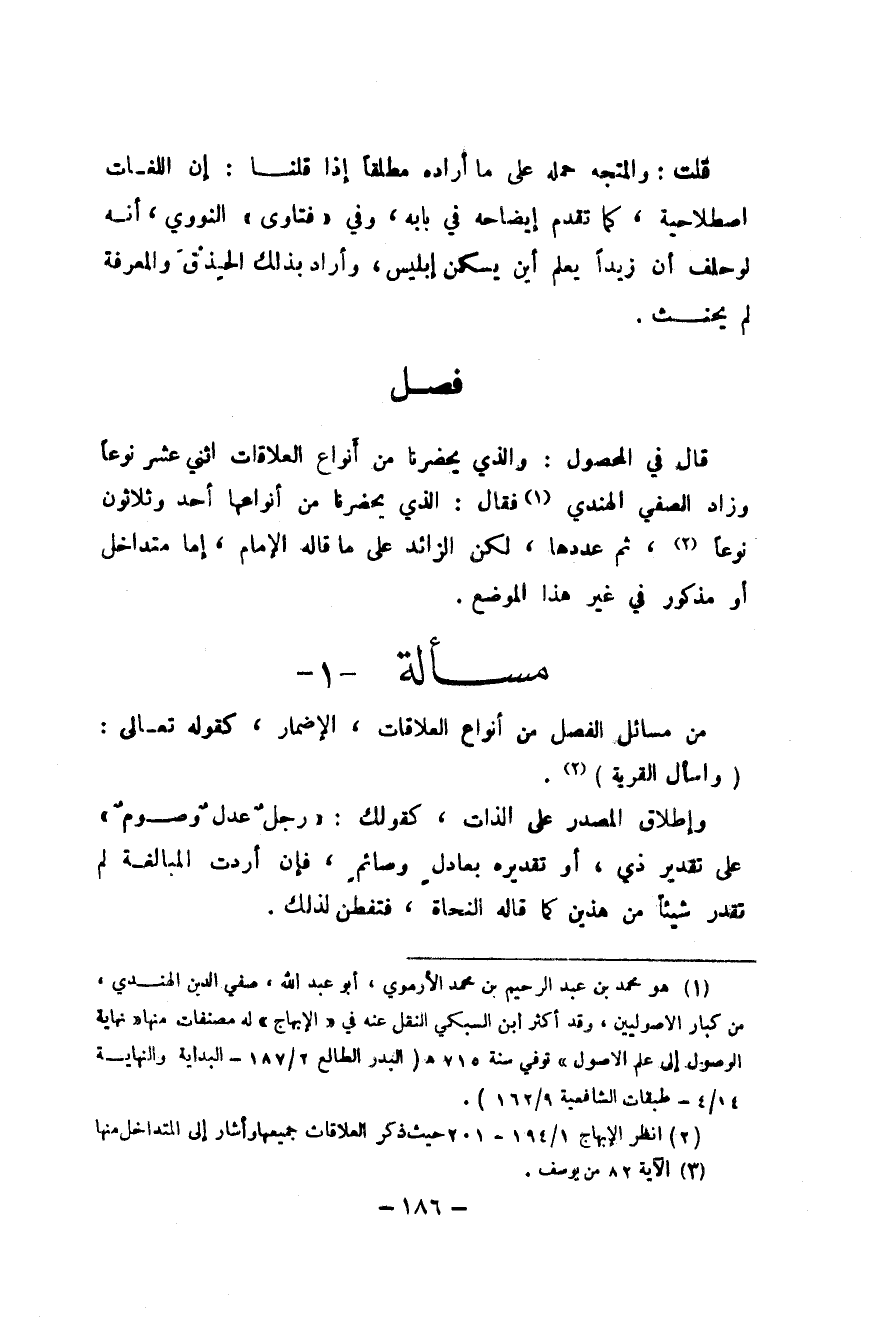 قلت : والمتجه حمله على ما أراده مطلقاً إذا قلنـــا : إن اللغـات
اصطلاحية ، كما تقدم إيضاحه في بابه ، وفي « فتاوى » النووي ، أنـه
لو حلف أن زيداً يعلم أين يسكن إبليس ، وأراد بذلك الحِذْقَ والمعرفة
لم يحنـــث .
فصـل
قال في المحصول : والذي يحضرنا من أنواع العلاقات اثني عشر نوعاً
وزاد الصفي الهندي (١) فقال : الذي يحضرنا من أنواعها أحد وثلاثون
نوعاً (٢) ، ثم عددها ، لكن الزائد على ما قاله الإمام ، إما متداخل
أو مذكور في غير هذا الموضع .
مســـألة -١-
من مسائل الفصل من أنواع العلاقات ، الإضمار ، كقوله تعـالى :
( واسأل القرية ) (٢) .
وإطلاق المصدر على الذات ، كقولك : « رجلٌ عدلٌ وصـومٌ »
على تقدير ذي ، أو تقديره بعادلٍ وصائمٍ ، فإن أردت المبالغـة لم
تقدر شيئاً من هذين كما قاله النحاة ، فتفطن لذلك .
(١) هو محمد بن عبد الرحيم بن محمد الأرموي ، أبو عبد الله ، صفي الدين الهنـدي ،
من كبار الاصوليين ، وقد أكثر ابن السبكي النقل عنه في « الإبهاج » له مصنفات منها « نهاية
الوصول إلى علم الاصول » توفي سنة ٧١٥ ھ ( البدر الطالع ١٨٧/٢ – البداية والنهايـة
٤/١٤ – طبقات الشافعية ١٦٢/٩ ) .
(٢) انظر الإبهاج ١٩٤/١ – ٢٠١ حيث ذكر العلاقات جميعها وأشار إلى المتداخل منها
(٣) الآية ٨٢ من يوسف .
– ١٨٦ –